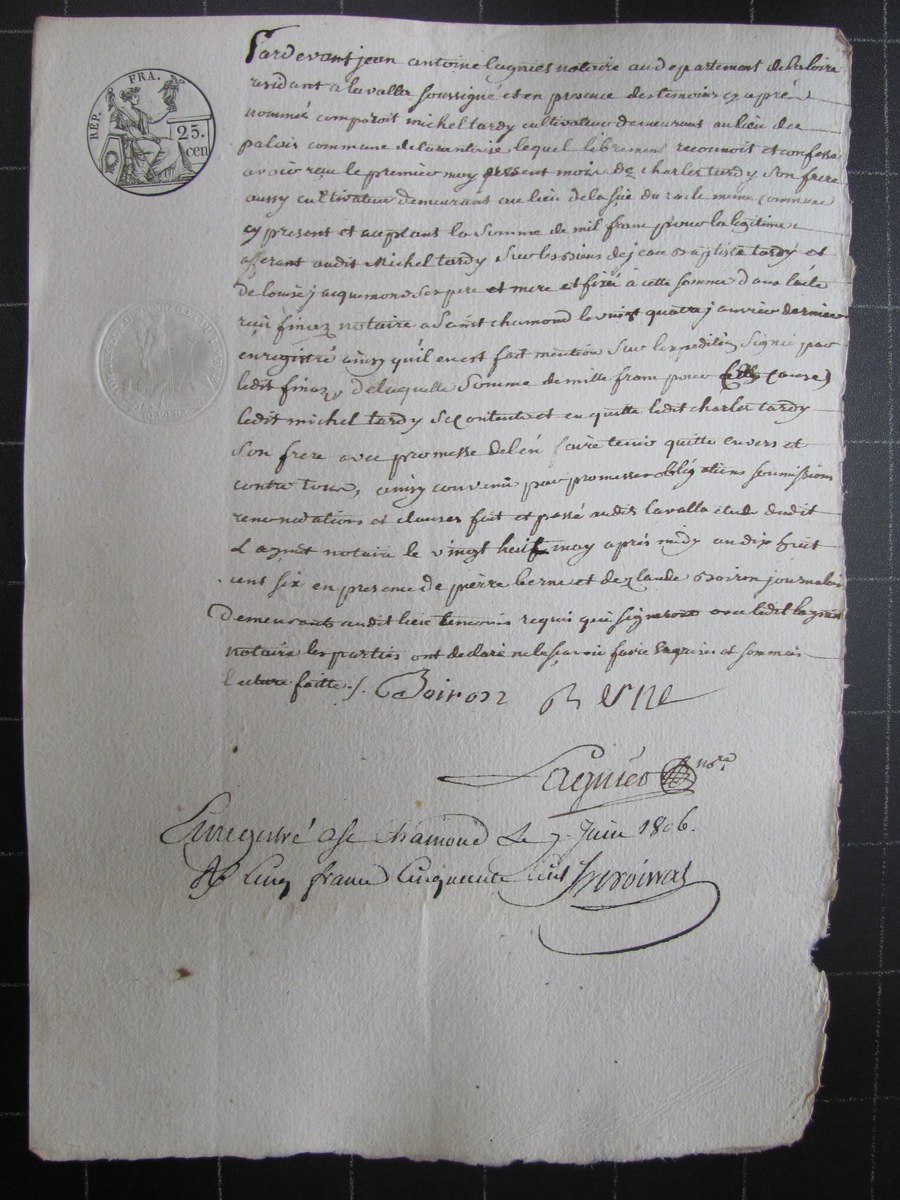 RÉP. FRA.
25.
cen
Pardevant jean antoine Lagniet notaire au departement de la loire
residant a lavalla soussigné et en presence des temoins cy apré
nommés comparoit michel tardy cultivateur demeurant au lieu de
palais commune de larantaise lequel librement reconnoit et confesse
avoir reçu le premier may present mois de charles tardy son frere
aussy cultivateur demeurant au lieu de la même commune
cy present et aceptant la somme de mil franc pour la legitime
afferant audit Michel tardy sur les biens de jean baptiste tardy et
de louise jacquemond ses pere et mere et fixée à cette somme dans l'acte
reçu finaz notaire a saint chamond le vingt quatre janvier dernier
enregistré ainsy qu'il en est fait mention sur l'expedition signée par
ledit finaz, de laquelle somme de mille franc pour causes
ledit michel tardy se contente et en quitte ledit charles tardy
son frere avec promesse de l'en faire tenir quitte envers et
contre tous, ainsy convenu par promesses obligations soumissions
renonciations et clauses fait et passé audit lavalla etude dudit
Lagniet notaire le vingt heit may après midy an dix huit
cent six en presence de pierre berne et de claude boiron journaliers
demeurants audit lieu temoins requis qui signeront avec ledit lagniet
notaire les parties ont declaré ne le savoir faire enquises et sommées
lecture faitte ./. Boiron Berne
Lagniet nore
Enregistré a st Chamond le 7 Juin 1806.
R/ Cinq francs Cinquante cent